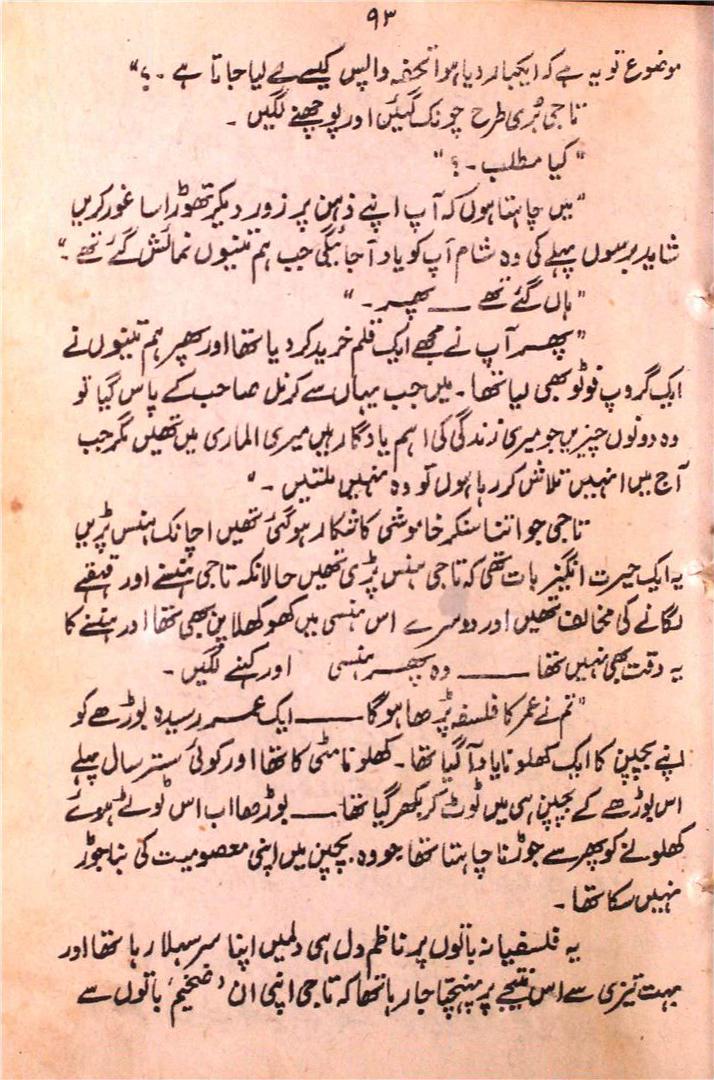 ۹۳
موضوع تو یہ ہے کہ ایکبار دیا ہوا تحفہ واپس کیسے لے لیا جاتا ہے ۔ ؟"
تاجی بُری طرح چونک گئیں اور پوچھنے لگیں ۔
" کیا مطلب ۔ ؟ "
" میں چاہتا ہوں کہ آپ اپنے ذہن پر زور دیکر تھوڑا سا غور کریں
شاید برسوں پہلے کی وہ شام آپ کو یاد آجائیگی جب ہم تینوں نمائش گئے تھے ۔"
" ہاں گئے تھے ــــ پھر ۔ "
" پھر آپ نے مجھے ایک قلم خرید کر دیا تھا اور پھر ہم تینوں نے
ایک گروپ فوٹو بھی لیا تھا ۔ میں جب یہاں سے کرنل صاحب کے پاس گیا تو
وہ دونوں چیزیں جو میری زندگی کی اہم یادگار ہیں میری الماری میں تھیں مگر جب
آج میں انہیں تلاش کر رہا ہوں تو وہ نہیں ملتیں ۔ "
تاجی جو اتنا سنکر خاموشی کا شکار ہو گئی تھیں اچانک ہنس پڑیں
یہ ایک حیرت انگیز بات تھی کہ تاجی ہنس پڑی تھیں حالانکہ تاجی ہنسنے اور قہقہے
لگانے کی مخالف تھیں اور دوسرے اس ہنسی میں کھوکھلا پن بھی تھا اور ہنسنے کا
یہ وقت بھی نہیں تھا ــــــ وہ پھر ہنسی اور کہنے لگیں ۔
" تم نے عمر کا فلسفہ پڑھا ہوگا ــــــ ایک عمر رسیدہ بوڑھے کو
اپنے بچپن کا ایک کھلونا یاد آگیا تھا ۔ کھلونا مٹی کا تھا اور کوئی ستر سال پہلے
اس بوڑھے کے بچپن ہی میں ٹوٹ کر بکھر گیا تھا ــــ بوڑھا اب اس ٹوٹے ہوئے
کھلونے کو پھر سے جوڑنا چاہتا تھا جو وہ بچپن میں اپنی معصومیت کی بنا جوڑ
نہیں سکا تھا ۔
یہ فلسفیانہ باتوں پر ناظم دل ہی دلمیں اپنا سر سہلا رہا تھا اور
بہت تیزی سے اس نتیجے پر پہنچتا جا رہا تھا کہ تاجی اپنی ان ' ضخیم ' باتوں سے